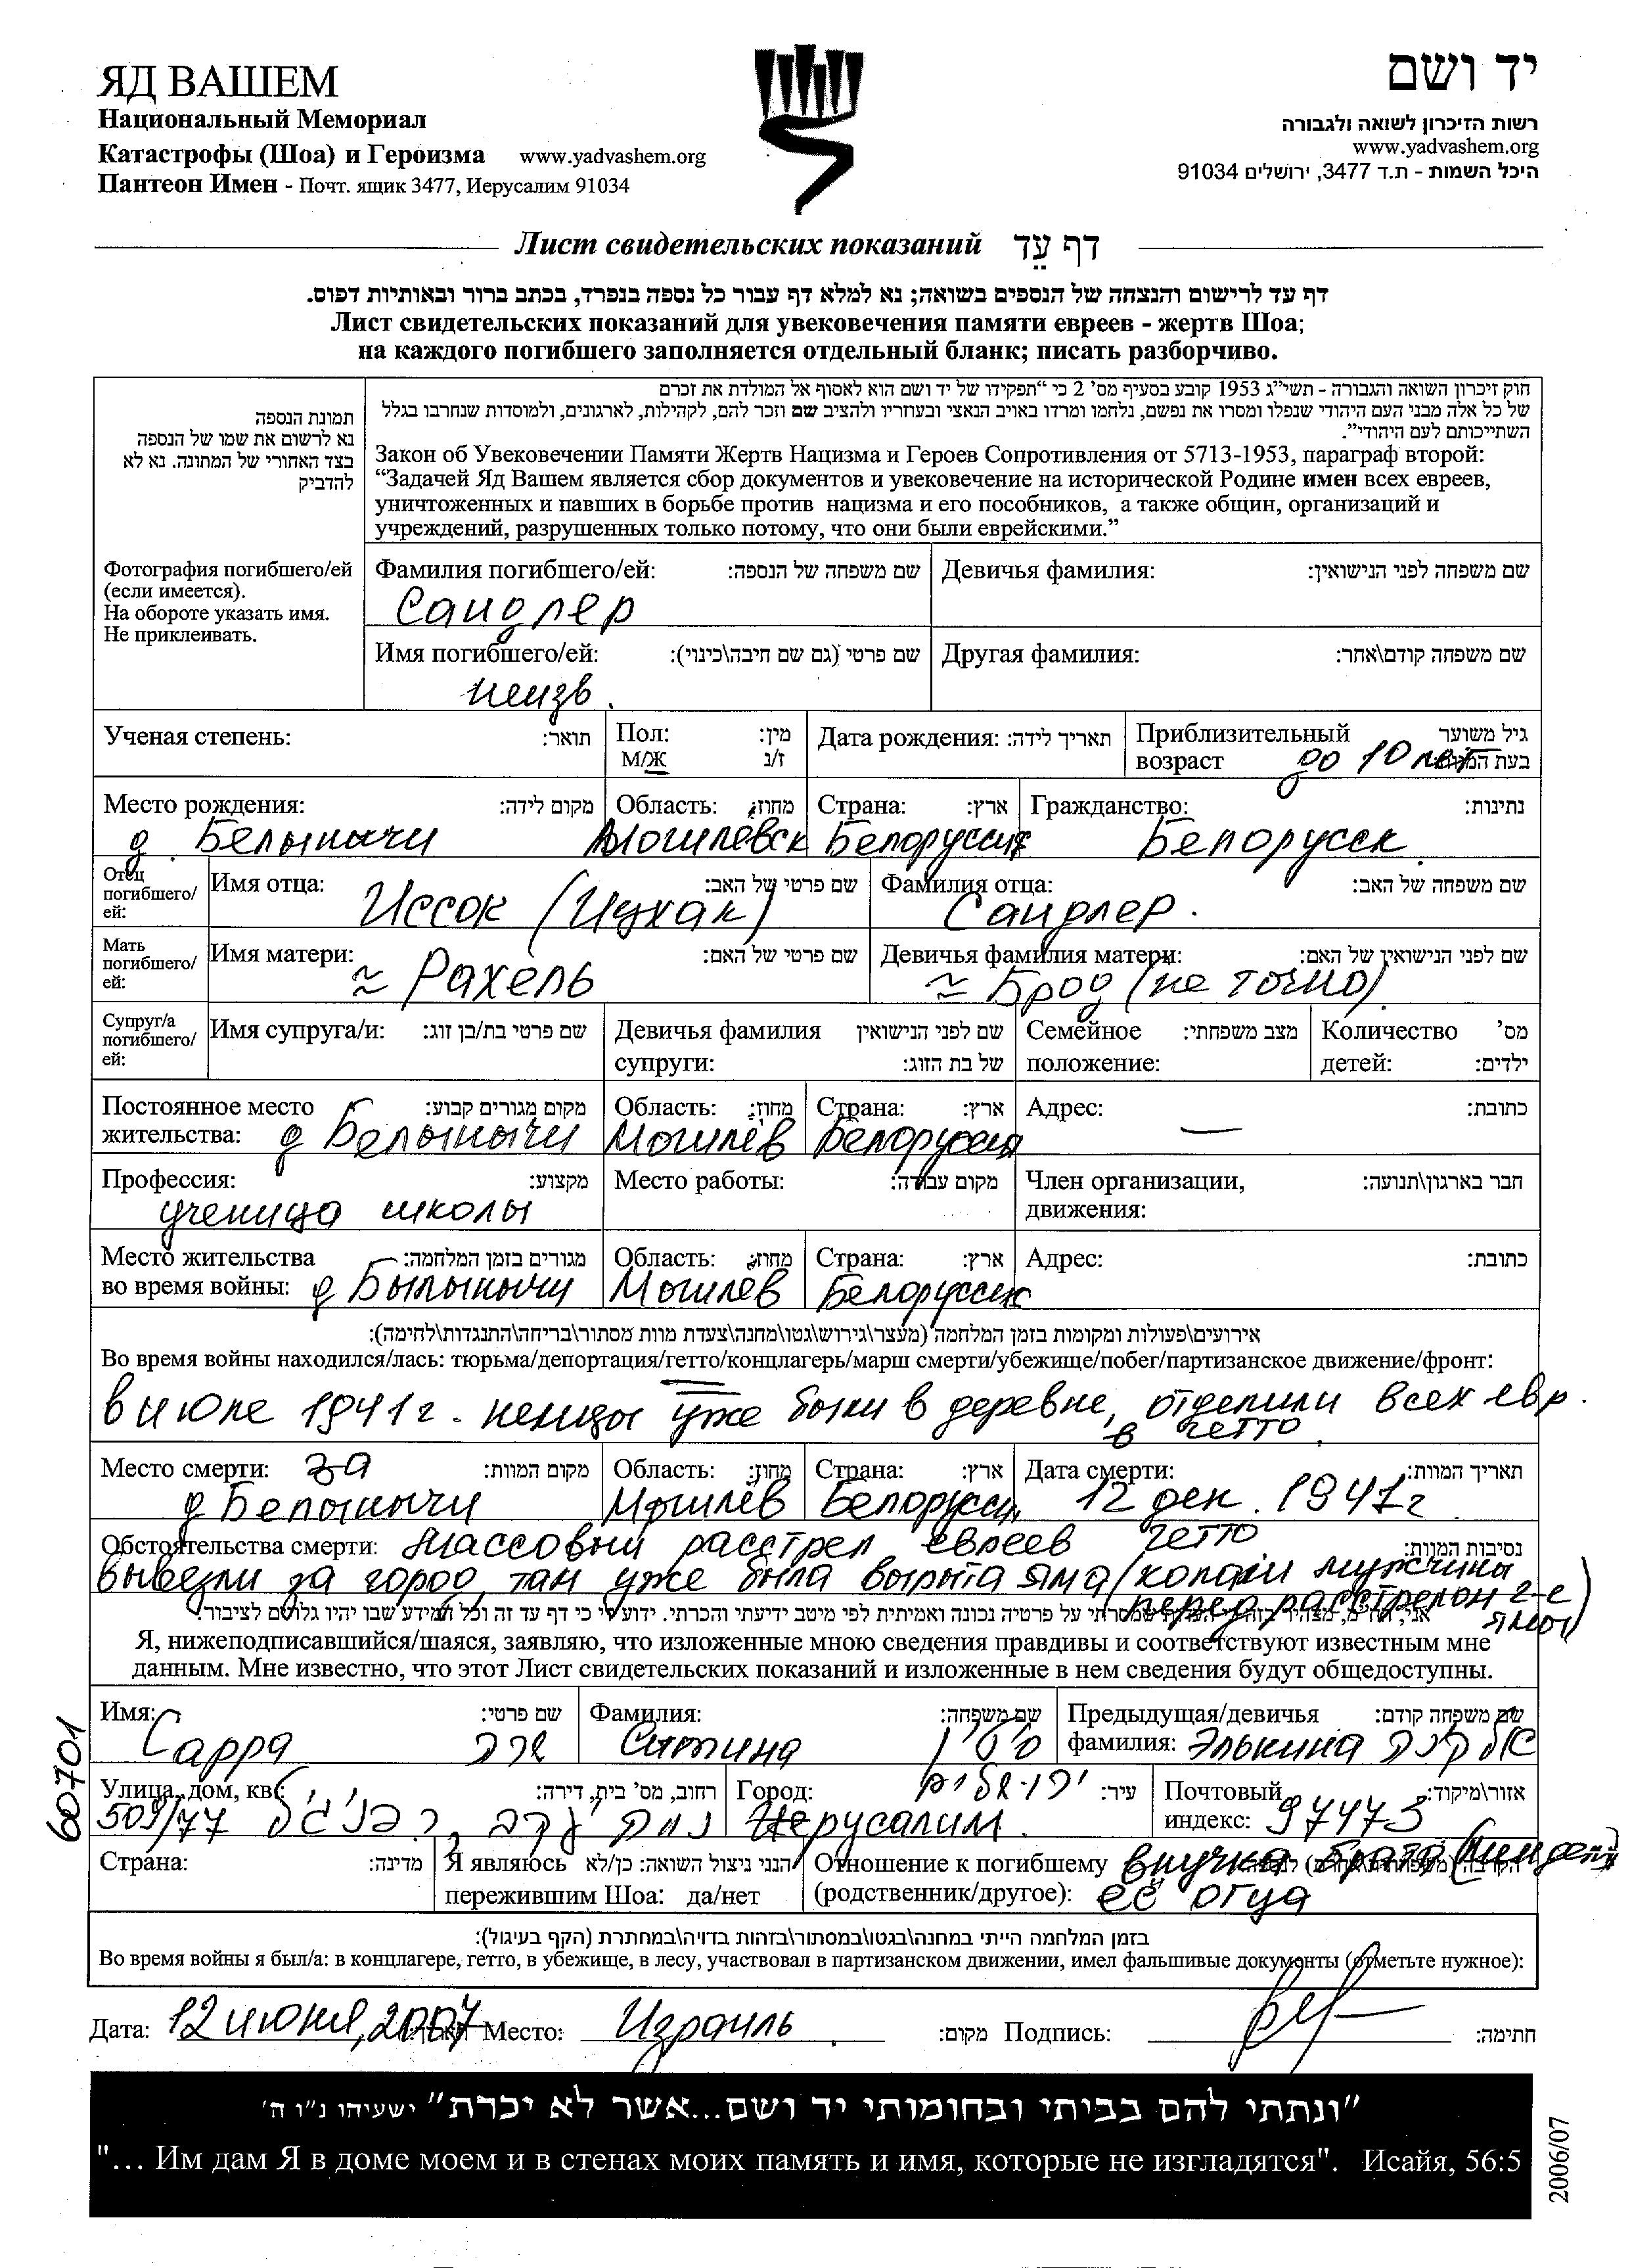 ЯД ВАШЕМ
יד ושם
Национальный Мемориал
Катастрофы (Шоа) и Героизма www.yadvashem.org
Пантеон Имен - Почт. ящик 3477, Иерусалим 91034
רשות הזיכרון לשואה ולגבורה
www.yadvashem.org
היכל השמות - ת.ד 3477, ירושלים 91034
Лист свидетельских показаний דף עֵד
דף עד לרישום והנצחה של הנספים בשואה; נא למלא דף עבור כל נספה בנפרד, בכתב ברור ובאותיות דפוס.
Лист свидетельских показаний для увековечения памяти евреев - жертв Шоа;
на каждого погибшего заполняется отдельный бланк; писать разборчиво.
תמונת הנספה
נא לרשום את שמו של הנספה
בצד האחורי של המתונה. נא לא
להדביק
Фотография погибшего/ей
(если имеется).
На обороте указать имя.
Не приклеивать.
חוק זיכרון השואה והגבורה - תשי"ג 1953 קובע בסעיף מס' 2 כי "תפקידו של יד ושם הוא לאסוף אל המולדת את זכרם
של כל אלה מבני העם היהודי שנפלו ומסרו את נפשם, נלחמו ומרדו באויב הנאצי ובעוזריו ולהציב שם וזכר להם, לקהילות, לארגונים, ולמוסדות שנחרבו בגלל
השתייכותם לעם היהודי".
Закон об Увековечении Памяти Жертв Нацизма и Героев Сопротивления от 5713-1953, параграф второй:
“Задачей Яд Вашем является сбор документов и увековечение на исторической Родине имен всех евреев,
уничтоженных и павших в борьбе против нацизма и его пособников, а также общин, организаций и
учреждений, разрушенных только потому, что они были еврейскими.”
Фамилия погибшего/ей: שם משפחה של הנספה: Девичья фамилия: שם משפחה לפני הנישואין:
Сандлер
Имя погибшего/ей: שם פרטי (גם שם חיבה\כינוי): Другая фамилия: שם משפחה קודם\אחר:
неизв.
Ученая степень: תואר: Пол: מין: Дата рождения: תאריך לידה: Приблизительный גיל משוער
М/Ж ז/נ возраст до 10 лет
Место рождения: מקום לידה: Область: מחוז: Страна: ארץ: Гражданство: נתינות:
д. Белыничи Могилёвск Белоруссия Белорусск.
Отец
погибшего/
ей:
Имя отца: שם פרטי של האב: Фамилия отца: שם משפחה של האב:
Иссок (Ицхак) Сандлер.
Мать
погибшего/
ей:
Имя матери: שם פרטי של האם: Девичья фамилия матери: שם לפני הנישואין של האם:
≈ Рахель ≈ Брод (не точно)
Супруг/а
погибшего/
ей:
Имя супруга/и: שם פרטי בת/בן זוג: Девичья фамилия שם לפני הנישואין Семейное מצב משפחתי: Количество מס'
супруги: של בת הזוג: положение: детей: ילדים:
Постоянное место מקום מגורים קבוע: Область: מחוז: Страна: ארץ: Адрес: כתובת:
жительства: д Белыничи Могилёв Белоруссия —
Профессия: מקצוע: Место работы: מקום עבודה: Член организации, חבר בארגון\תנועה:
движения:
ученица школы
Место жительства מגורים בזמן המלחמה: Область: מחוז: Страна: ארץ: Адрес: כתובת:
во время войны: д Былыничи Могилёв Белоруссия
אירועים\פעולות ומקומות בזמן המלחמה (מעצר\גירוש\גטו\מחנה\צעדת מוות מסתור\בריחה\התנגדות\לחימה):
Во время войны находился/лась: тюрьма/депортация/гетто/концлагерь/марш смерти/убежище/побег/партизанское движение/фронт:
в июле 1941г. немцы уже были в деревне, отделили всех евр.
в гетто.
Место смерти: за מקום המוות: Область: מחוז: Страна: ארץ: Дата смерти: תאריך המוות:
д Белыничи Могилёв Белоруссия 12 дек. 1941г
Обстоятельства смерти: массовый расстрел евреев гетто נסיבות המוות:
вывезли за город, там уже была вырыта яма (копали мужчины
перед расстрелом 2-е
ямы)
Я, нижеподписавшийся/шаяся, заявляю, что изложенные мною сведения правдивы и соответствуют известным мне
данным. Мне известно, что этот Лист свидетельских показаний и изложенные в нем сведения будут общедоступны.
Имя: שם פרטי: Фамилия: שם משפחה: Предыдущая/девичья שם משפחה קודם:
Сарра שרה Ситина סיטין фамилия: Элькина אלקינה
Улица, дом, кв: רחוב, מס' בית, דירה: Город: עיר: ירושלים Почтовый אזור\מיקוד:
509/77 נווה יעקב, Иерусалим. индекс: 97473
Страна: מדינה: Я являюсь הנני ניצול השואה: כן/לא Отношение к погибшему внучка брата
пережившим Шоа: да/нет (родственник/другое): её отца
בזמן המלחמה הייתי במחנה\בגטו\במסתור\בזהות בדויה\במחתרת (הקף בעיגול):
Во время войны я был/а: в концлагере, гетто, в убежище, в лесу, участвовал в партизанском движении, имел фальшивые документы (отметьте нужное):
Дата: 12 июня, 2007 Место: Израиль מקום: Подпись: חתימה:
"ונתתי להם בביתי ובחומותי יד ושם...אשר לא יכרת" ישעיהו נ"ו ה'
"... Им дам Я в доме моем и в стенах моих память и имя, которые не изгладятся". Исайя, 56:5
60701
2006/07